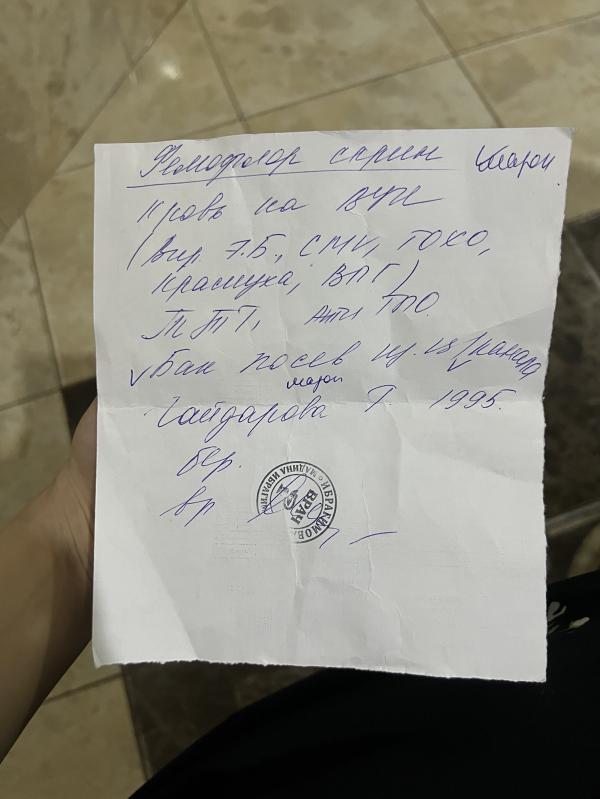 Фемофлор скрин
Кровь на ВУИ
(вир. Э.Б., СМV, ТОХО,
краснуха, ВПГ)
ТТГ, Анти ТПО.
Бак посев из ц/канала
Гайдарова Г. 1995.
бер.
вр
ИБРАГИМОВА МАДИНА ИБРАГИМ
ВРАЧ